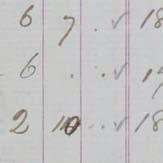 6 7 . ✓ 18
6 . . ✓
2 10 .. ✓ 18